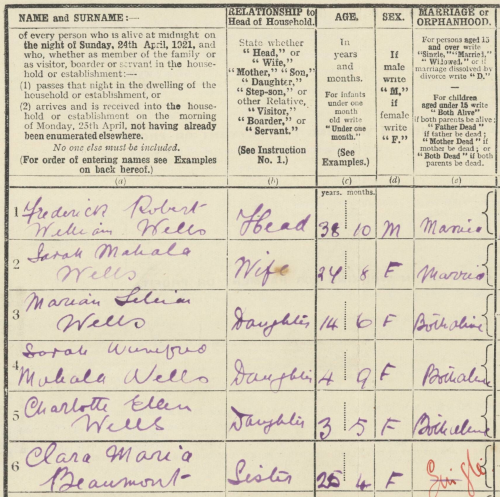 NAME and SURNAME:—
of every person who is alive at midnight on
the night of Sunday, 24th April, 1921, and
who, whether as member of the family or
as visitor, boarder or servant in the house-
hold or establishment:—
(1) passes that night in the dwelling of the
household or establishment, or
(2) arrives and is received into the house-
hold or establishment on the morning
of Monday, 25th April, not having already
been enumerated elsewhere.
No one else must be included.
(For order of entering names see Examples
on back hereof.)
(a)
RELATIONSHIP to
Head of Household.
State whether
"Head," or
"Wife,"
"Mother," "Son,"
"Daughter,"
"Step-son," or
other Relative,
"Visitor,"
"Boarder," or
"Servant."
(See Instruction
No. 1.)
(b)
AGE.
In
years
and
months.
For infants
under one
month
old write
"Under one
month."
(See
Examples.)
(c)
SEX.
If
male
write
"M,"
if
female
write
"F."
(d)
MARRIAGE or
ORPHANHOOD.
For persons aged 15
and over write
"Single," "Married,"
"Widowed," or if
marriage dissolved by
divorce write "D."
For children
aged under 15 write
"Both Alive"
if both parents be alive;
"Father Dead"
if father be dead;
"Mother Dead" if
mother be dead; or
"Both Dead" if both
parents be dead.
(e)
years. months.
1 Frederick Robert
William Wells Head 38 10 M Married
2 Sarah Mahala
Wells Wife 8 F Married
3 Marian
Wells Daughter 14 6 F Both alive
4 Sarah Winifred
Mahala Wells Daughter 4 9 F Both alive
5 Charlotte Ellen
Wells Daughter 3 5 F Both alive
6 Clara Maria
Beaumont Sister 25 4 F Single